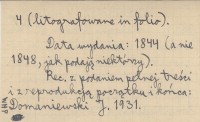 4 (litografowane in folio).
Data wydania: 1844 (a nie
1848, jak podają niektórzy).
Rec. z podaniem pełnej treści
i z reprodukcją początku i końca:
Domaniewski J. 1931.